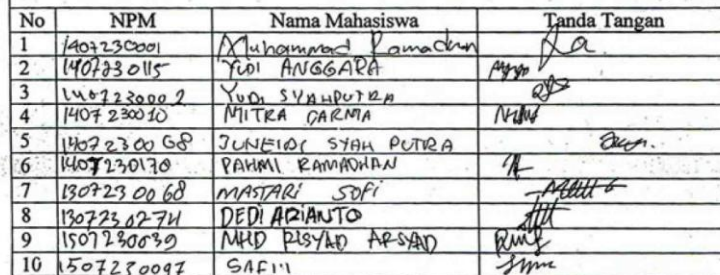 No NPM Nama Mahasiswa Tanda Tangan
1 1407230001 Muhammad Ramadhan
2 1407230115 YUDI ANGGARA
3 1407230002 YUDI SYAHPUTRA
4 1407230010 MITRA DARMA
5 1407230068 JUNEIDI SYAH PUTRA
6 1407230170 PAHMI RAMADHAN
7 1307230068 MASTARI SOFI
8 1307230274 DEDI ARIANTO
9 1507230039 MHD RISYAD ARSYAD
10 1507230097